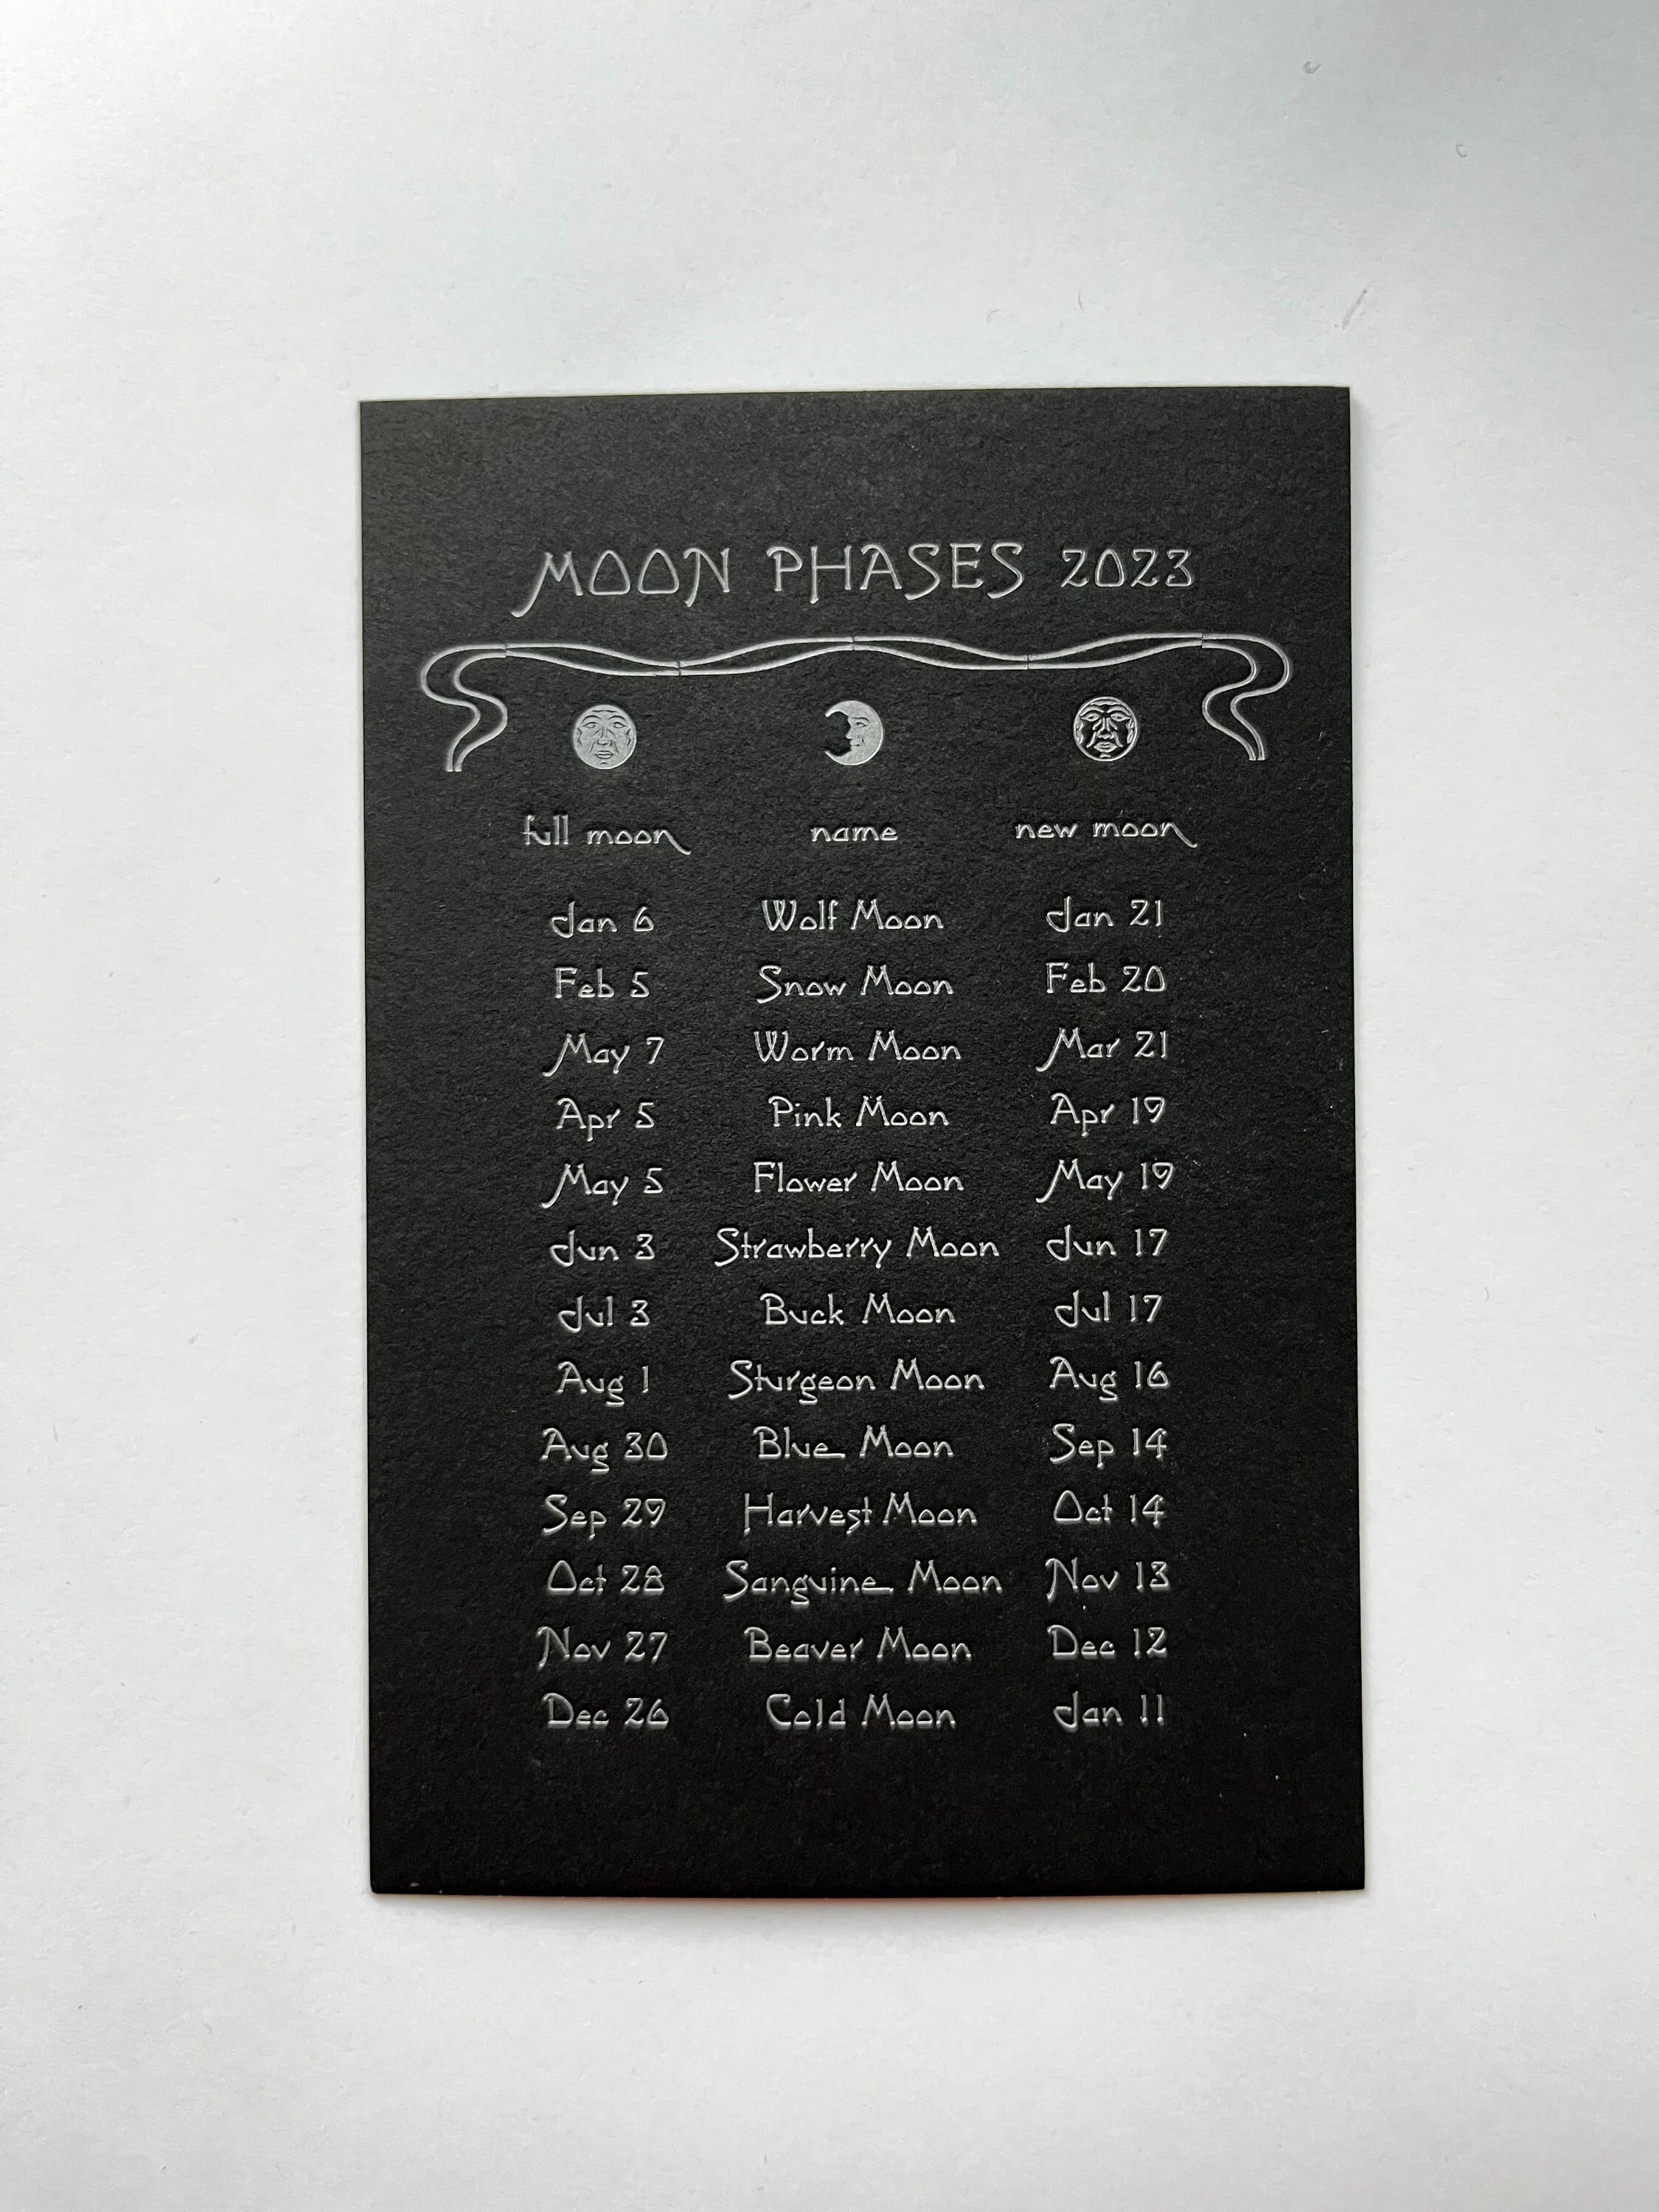 MOON PHASES 2023
full moon name new moon
Jan 6 Wolf Moon Jan 21
Feb 5 Snow Moon Feb 20
May 7 Worm Moon Mar 21
Apr 5 Pink Moon Apr 19
May 5 Flower Moon May 19
Jun 3 Strawberry Moon Jun 17
Jul 3 Buck Moon Jul 17
Aug 1 Sturgeon Moon Aug 16
Aug 30 Blue Moon Sep 14
Sep 29 Harvest Moon Oct 14
Oct 28 Sanguine Moon Nov 13
Nov 27 Beaver Moon Dec 12
Dec 26 Cold Moon Jan 11